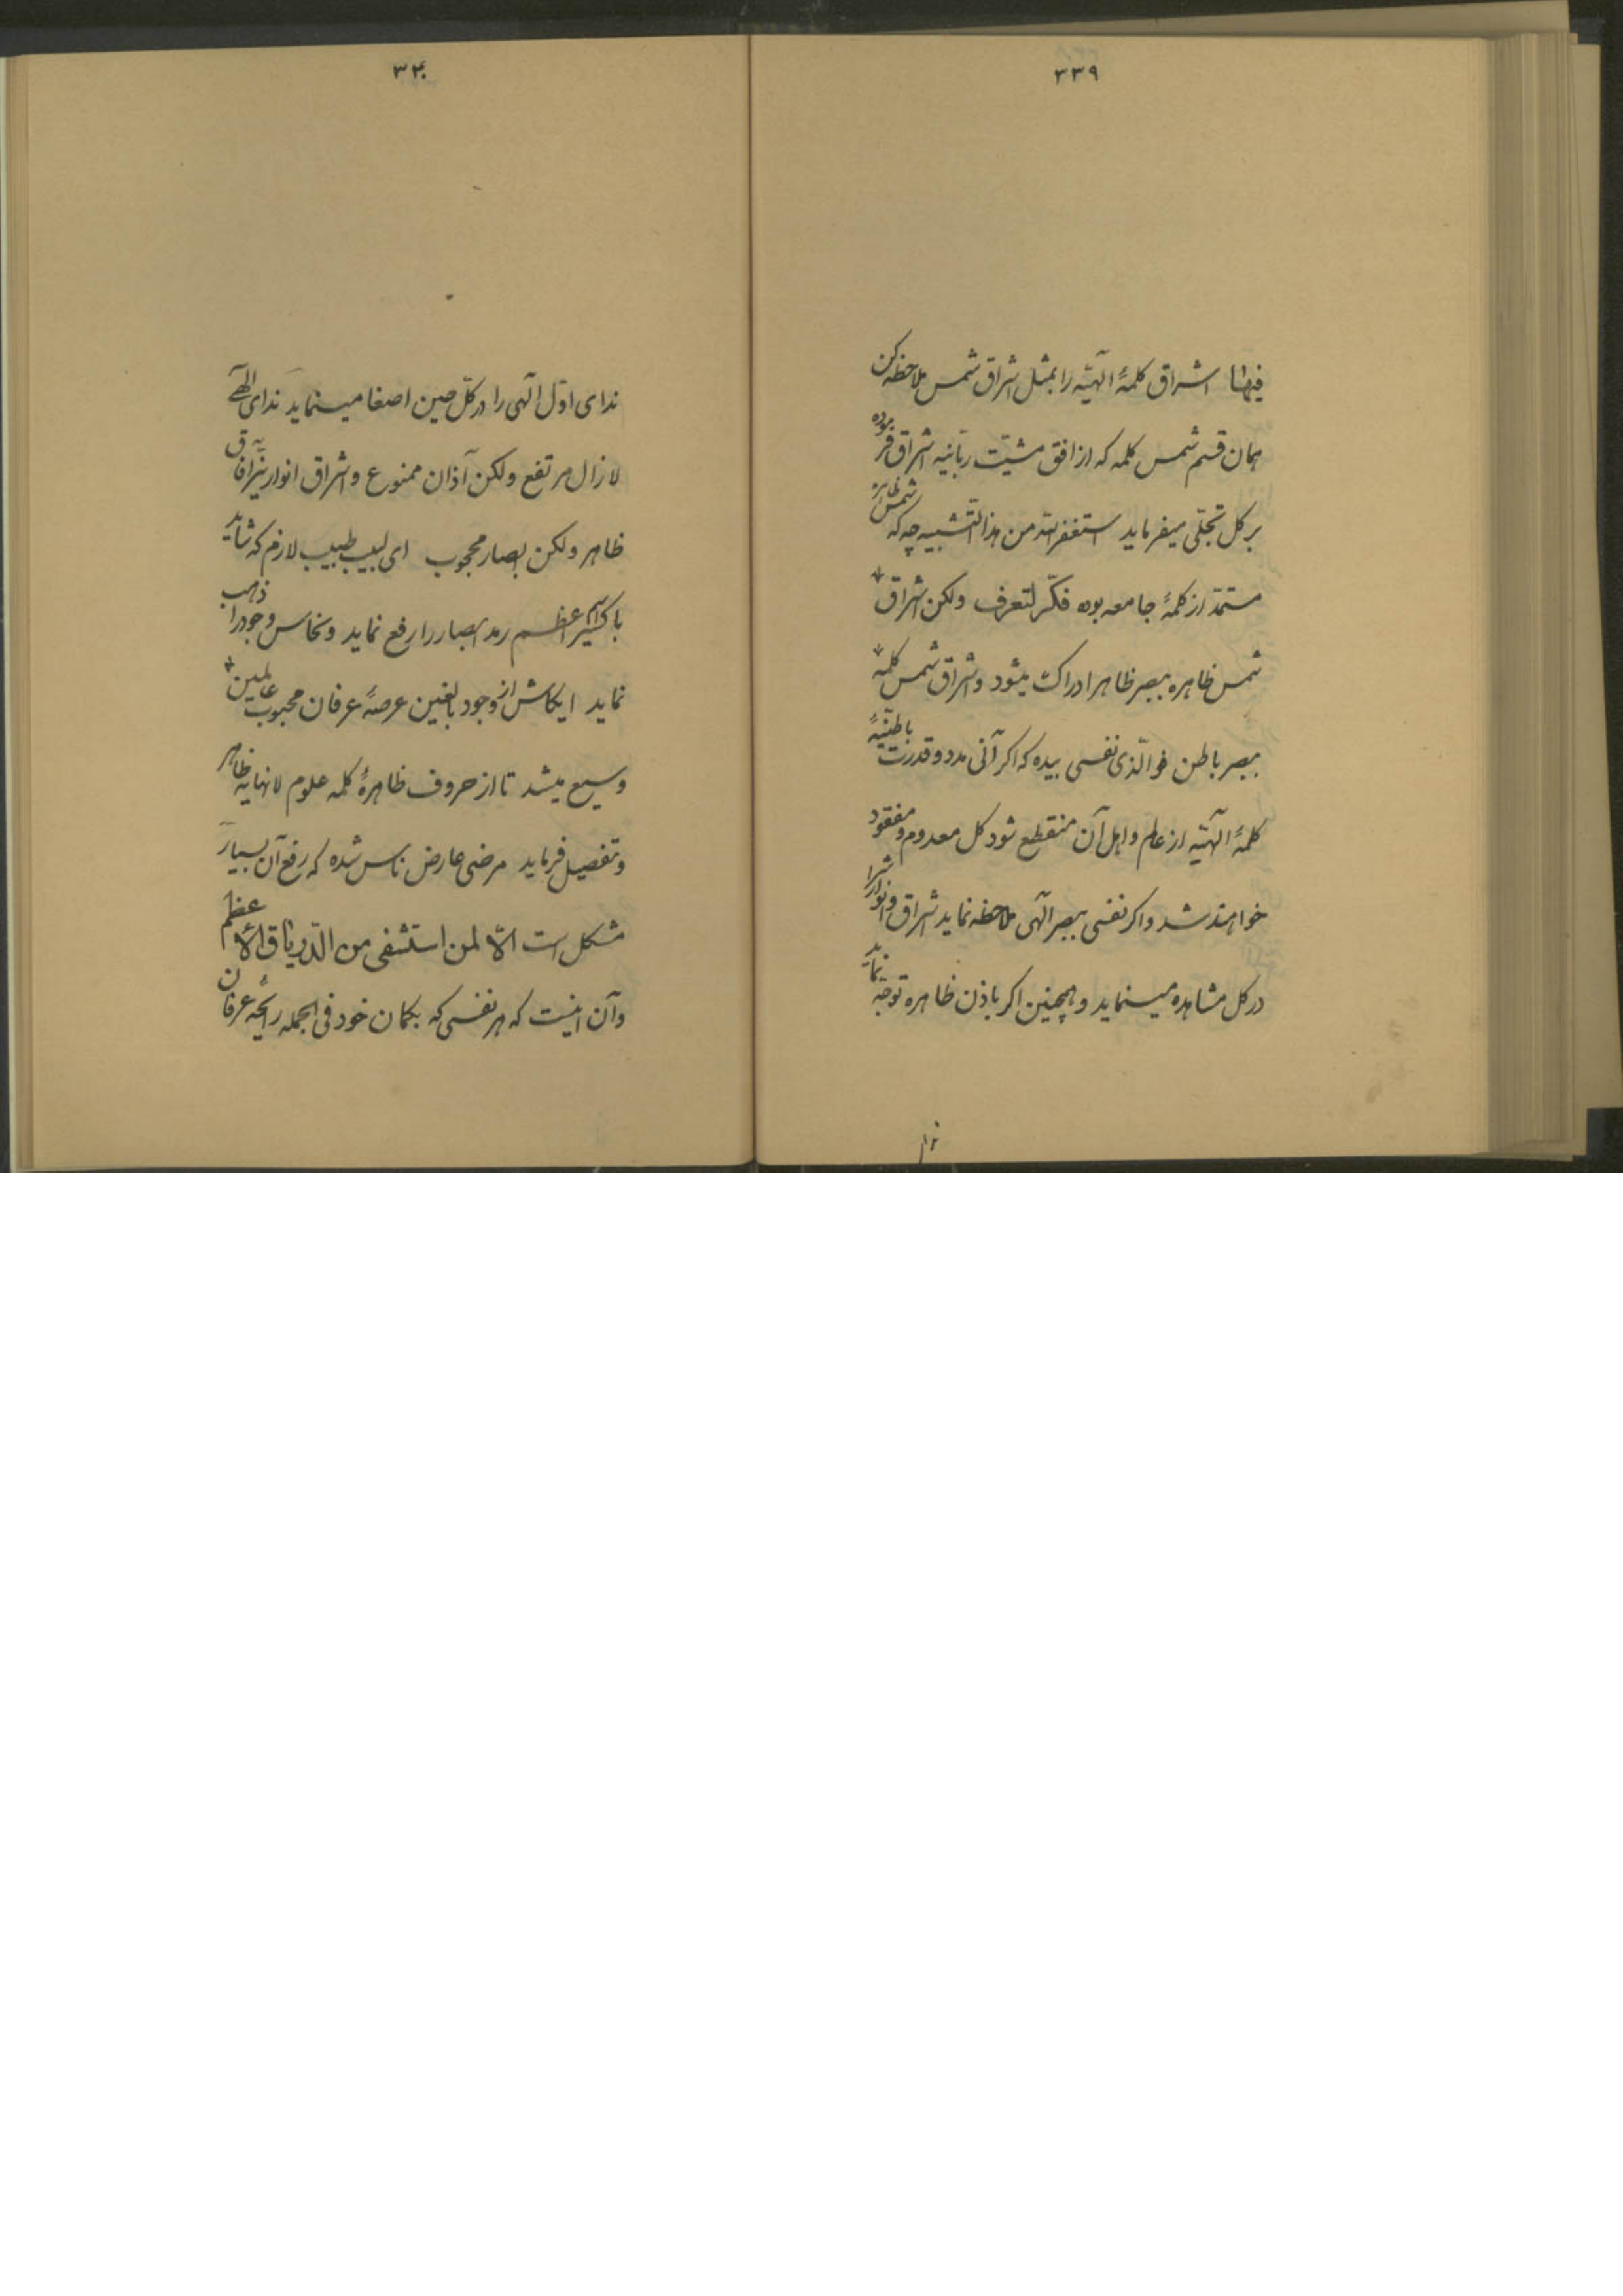 ۳۳۹
فیها اشراق کلمهٔ الهیّه را بمثل اشراق شمس ملاحظه کن
همان قسم شمس کلمه که از افق مشیّت ربّانیّه اشراق فرموده
بر کل تجلّی میفرماید استغفر الله من هذا التّشبیه چه که شمس ظاهره
مستمدّ از کلمهٔ جامعه بوده فکّر لتعرف ولکن اشراق
شمس ظاهره ببصر ظاهر ادراک میشود و اشراق شمس کلمه
ببصر باطن فوالّذی نفسی بیده که اکر آنی مدد و قدرت باطنیّهٔ
کلمهٔ الهیّه از عالم و اهل آن منقطع شود کل معدوم و مفقود
خواهند شد و اکر نفسی ببصر الهی ملاحظه نماید اشراق و انوارش را
در کل مشاهده مینماید و همچنین اکر باذن ظاهره توجّه نماید
۳۴۰
ندای اوّل الهی را در کلّ حین اصغا مینماید ندای الهی
لازال مرتفع ولکن آذان ممنوع و اشراق انوار نیّر آفاق
ظاهر ولکن ابصار محجوب ای لبیب طبیب لازم که شاید
باکسیر اسم اعظم رمد ابصار را رفع نماید و نحاس وجود را ذهب
نماید ایکاش از وجود بالغین عرصهٔ عرفان محبوب عالمین
وسیع میشد تا از حروف ظاهرهٔ کلمه علوم لانهایه ظاهر
و تفصیل فرماید مرضی عارض ناس شده که رفع آن بسیار
مشکل است الّا لمن استشفی من الدّریاق الأعظم
و آن اینست که هر نفسی که بکمان خود فی الجمله رائحهٔ عرفان